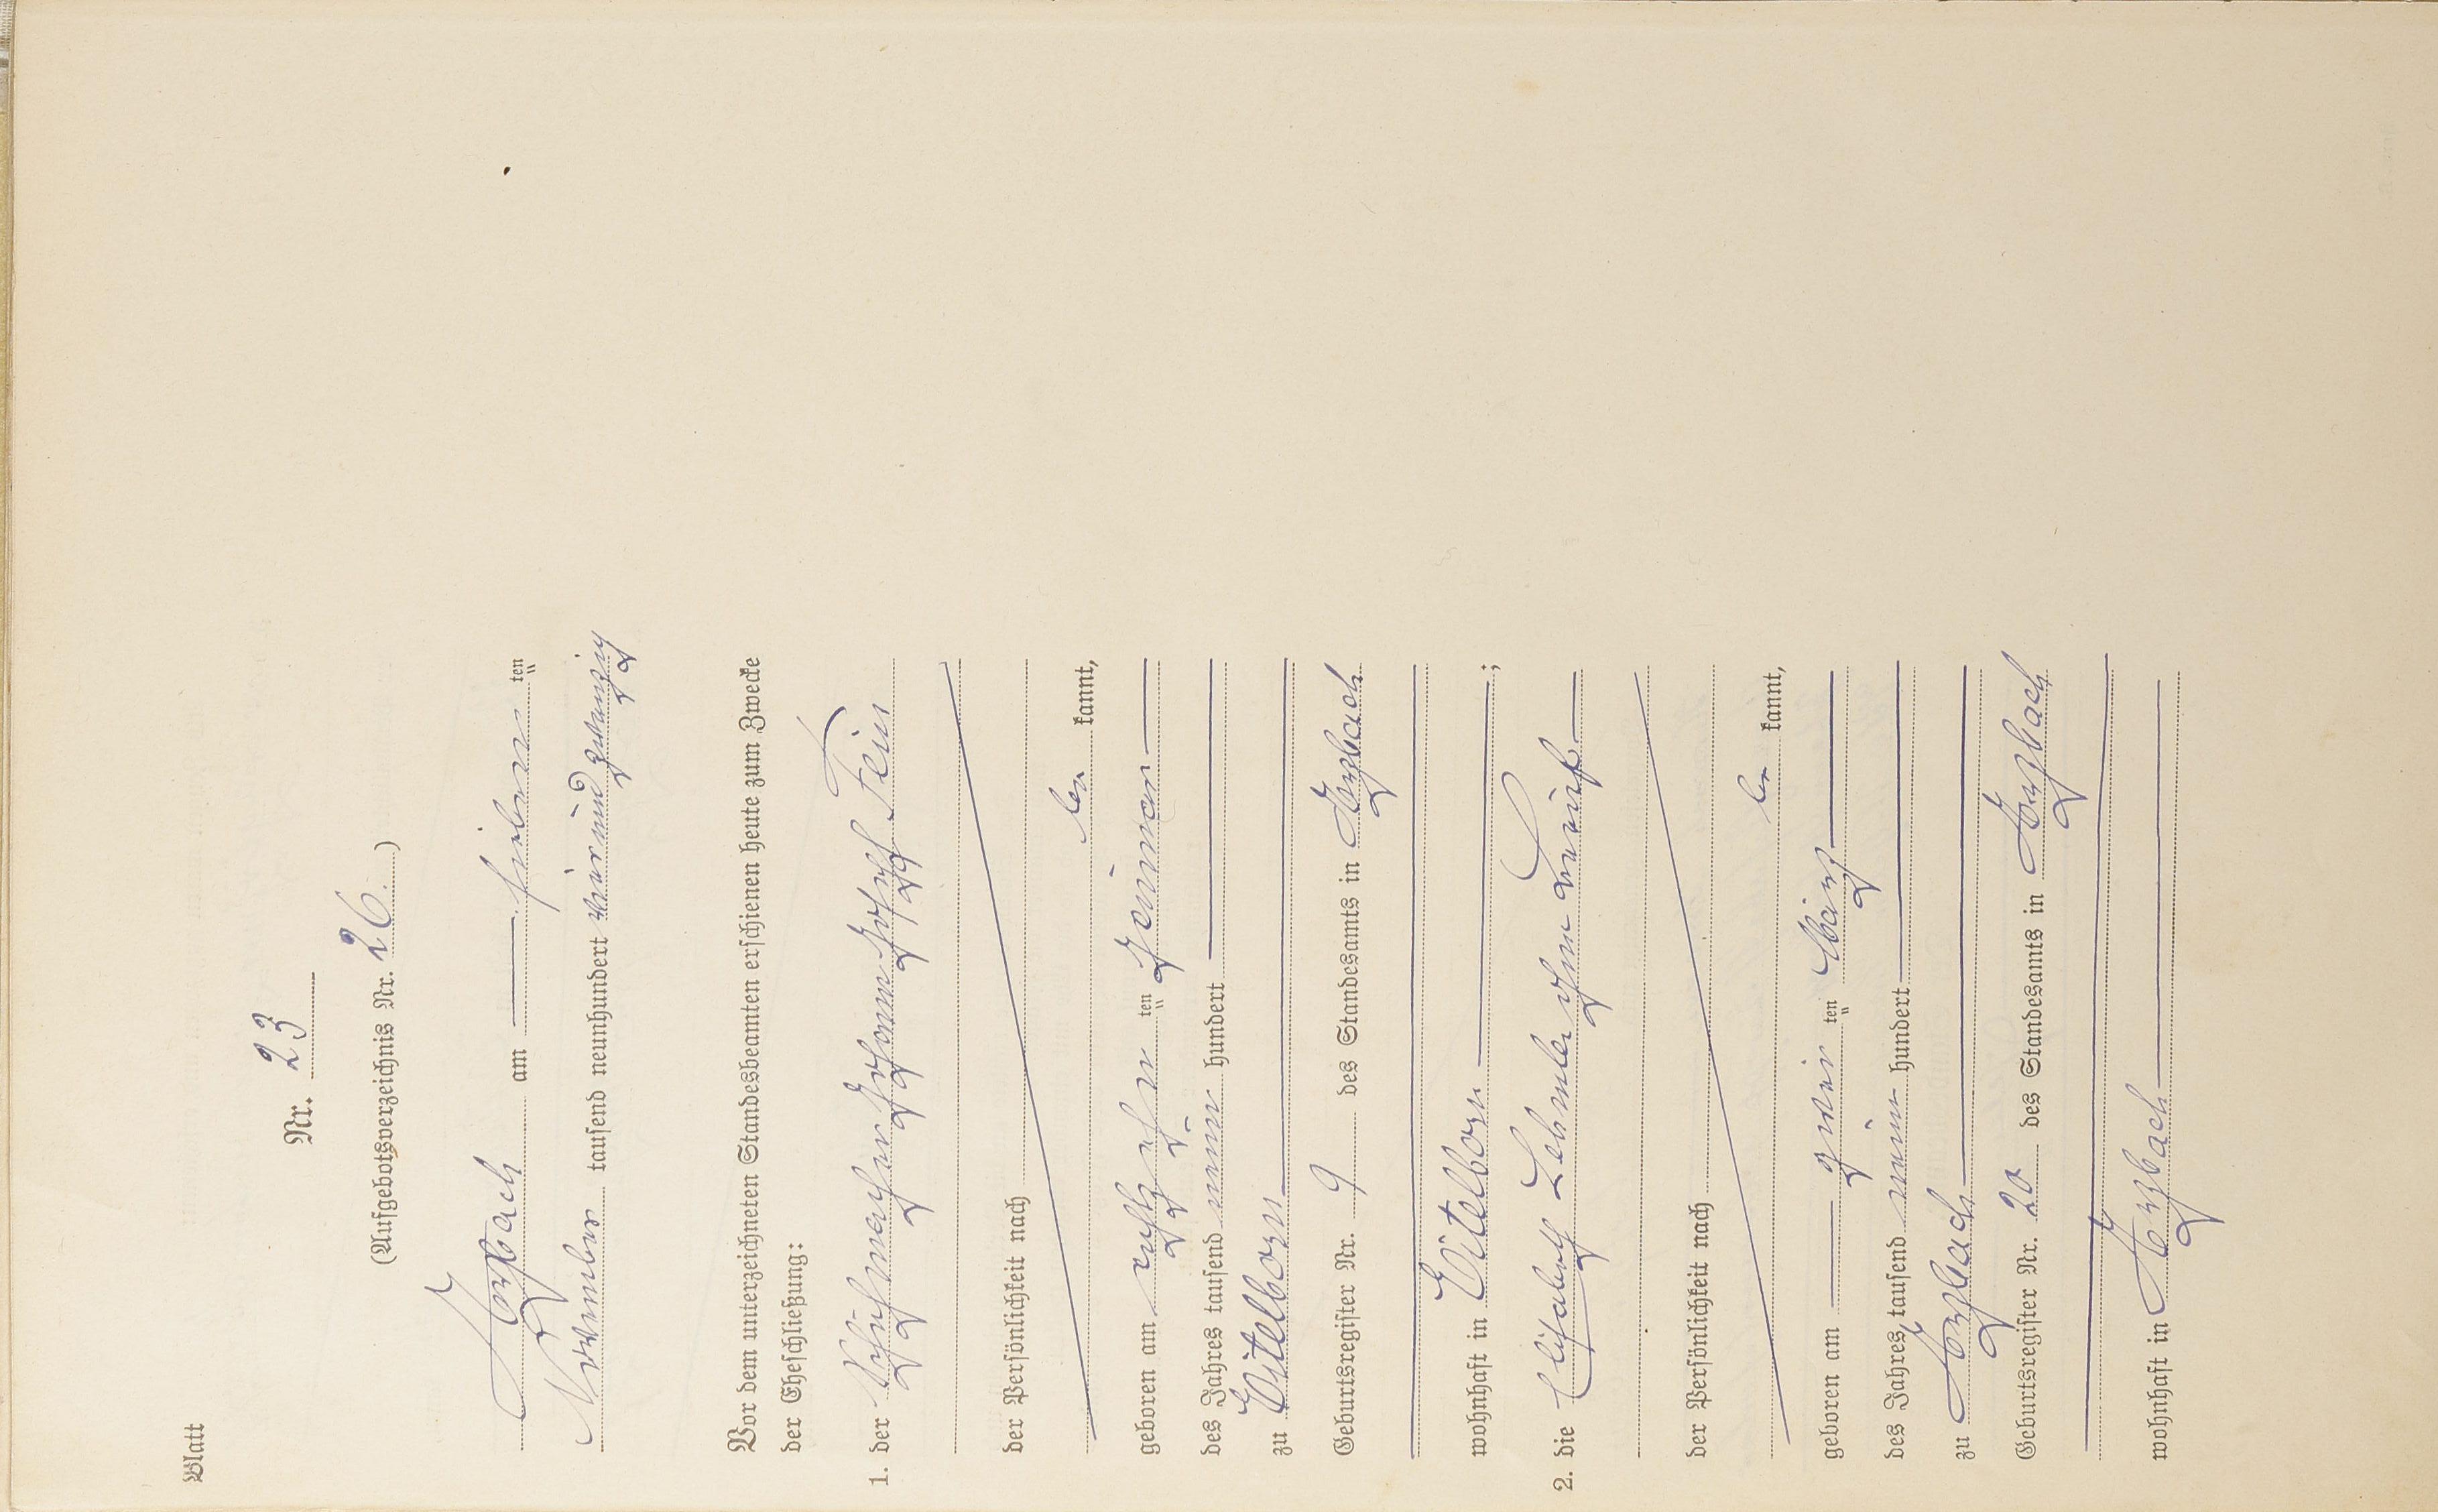 Blatt
Nr. 23
(Aufgebotsverzeichnis Nr. 26.)
Arzbach am sieben ten
November tausend neunhundert vierundzwanzig
Vor dem unterzeichneten Standesbeamten erschienen heute zum Zwecke
der Eheschließung:
1. der Schuhmacher Johann Josef Fein
der Persönlichkeit nach
be kannt,
geboren am achtzehn ten Januar
des Jahres tausend neun hundert
zu Eitelborn
Geburtsregister Nr. 9 des Standesamts in Arzbach
wohnhaft in Eitelborn ;
2. die Elisabeth Lehmler ohne Beruf
der Persönlichkeit nach
be kannt,
geboren am zwei ten März
des Jahres tausend neun hundert
zu Arzbach
Geburtsregister Nr. 20 des Standesamts in Arzbach
wohnhaft in Arzbach